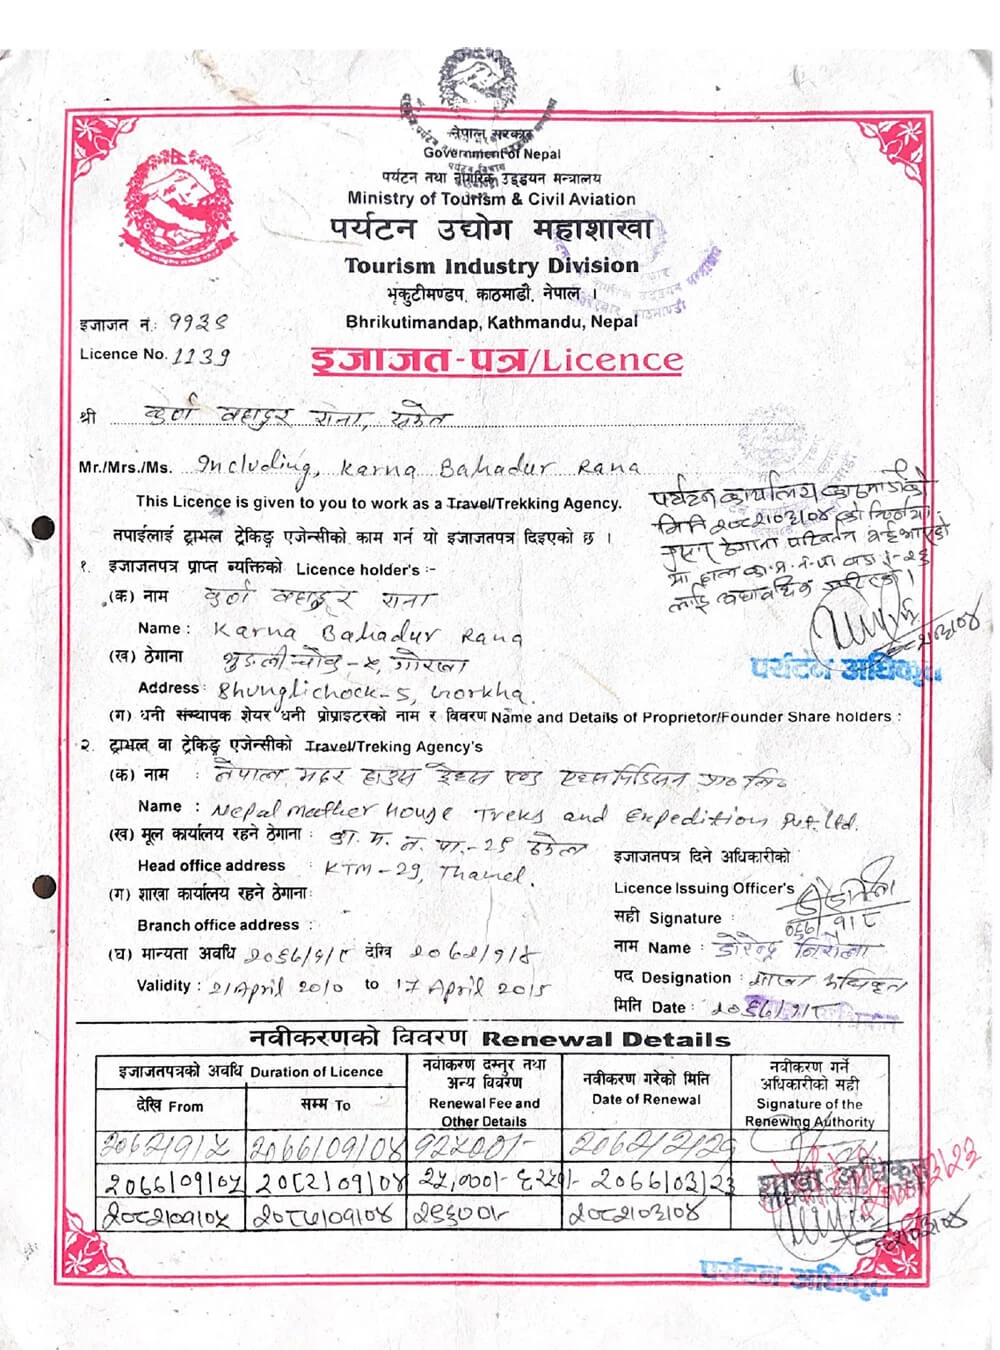 नेपाल सरकार
Government of Nepal
पर्यटन तथा नागरिक उड्डयन मन्त्रालय
Ministry of Tourism & Civil Aviation
पर्यटन उद्योग महाशाखा
Tourism Industry Division
भृकुटीमण्डप, काठमाडौं, नेपाल ।
Bhrikutimandap, Kathmandu, Nepal
इजाजत नं: ११३९
Licence No. 1139
इजाजत-पत्र/Licence
श्री कर्ण बहादुर राना, समेत
Mr./Mrs./Ms. Including, Karna Bahadur Rana
This Licence is given to you to work as a Travel/Trekking Agency.
तपाईलाई ट्राभल ट्रेकिङ्ग एजेन्सीको काम गर्न यो इजाजतपत्र दिइएको छ ।
पर्यटन कार्यालय काठमाडौंको
मिति २०८२।०३।०४ को निर्णया
नुसार ठेगाना परिवर्तन
१. इजाजतपत्र प्राप्त ब्यक्तिको Licence holder's :-
(क) नाम कर्ण बहादुर राना
Name : Karna Bahadur Rana
(ख) ठेगाना भुङलीचोक-५, गोरखा
Address: Bhunglichock-5, Gorkha.
पर्यटन अधिकृत
(ग) धनी संस्थापक शेयर धनी प्रोप्राइटरको नाम र विवरण Name and Details of Proprietor/Founder Share holders :
२. ट्राभल वा ट्रेकिङ्ग एजेन्सीको Travel/Treking Agency's
(क) नाम : नेपाल मदर हाउस ट्रेक्स एण्ड एक्सपिडिसन प्रा० लि०
Name : Nepal Mother House Treks and Expedition Pvt. Ltd.
(ख) मूल कार्यालय रहने ठेगाना : का. म. न. पा.-२९ ठमेल
Head office address : KTM-29, Thamel.
(ग) शाखा कार्यालय रहने ठेगानाः
Branch office address :
(घ) मान्यता अवधि २०६७/१/८ देखि २०७२/१/४
Validity : 21 April 2010 to 17 April 2015
इजाजतपत्र दिने अधिकारीको
Licence Issuing Officer's
सही Signature :
०६७/१/८
नाम Name :
पद Designation : शाखा अधिकृत
मिति Date : २०६७/१/८
नवीकरणको विवरण Renewal Details
इजाजतपत्रको अवधि Duration of Licence
देखि From
सम्म To
नवीकरण दस्तुर तथा अन्य विवरण Renewal Fee and Other Details
नवीकरण गरेको मिति Date of Renewal
नवीकरण गर्ने अधिकारीको सही Signature of the Renewing Authority
२०७२/१/५ २०७७/०१/०४ १२५००/- २०७२/२/२९
२०७७/०१/०५ २०८२/०१/०४ २५,०००/- ६२५०/- २०७७/०३/२३
शाखा अधिकृत
२०८२/०१/०५ २०८७/०१/०४ २०८२/०३/०४
पर्यटन अधिकृत